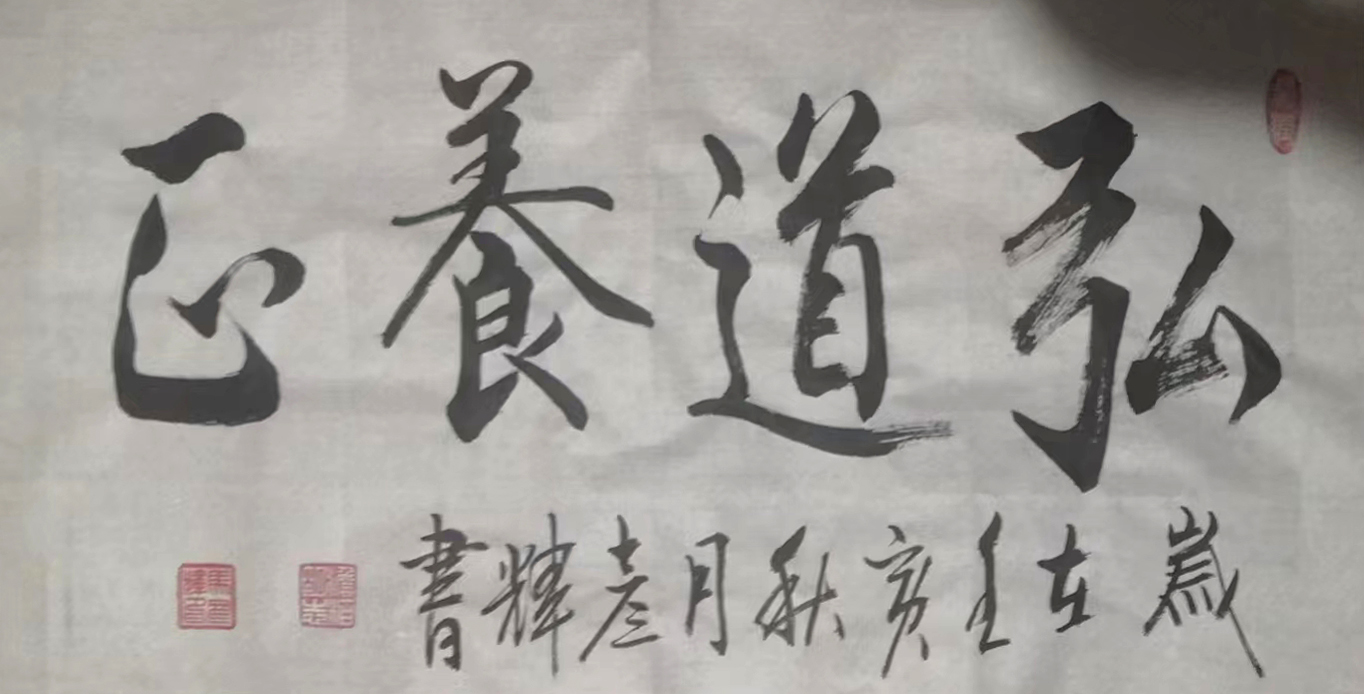 弘道養正
歲在壬寅秋月彦輝書